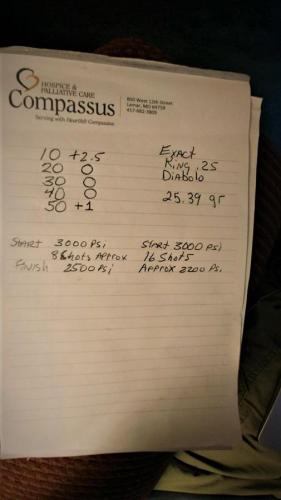 HOSPICE &
PALLIATIVE CARE
Compassus
Serving with Heartfelt Compassion
800 West 12th Street
Lamar, MO 64759
417-682-3805
10 +2.5
20 0
30 0
40 0
50 +1
Exact
King .25
Diabolo
25.39 gr
Start 3000 PSi
8 Shots Approx
Finish 2500 PSi
Start 3000 PSi
16 Shots
Approx 2200 PSi